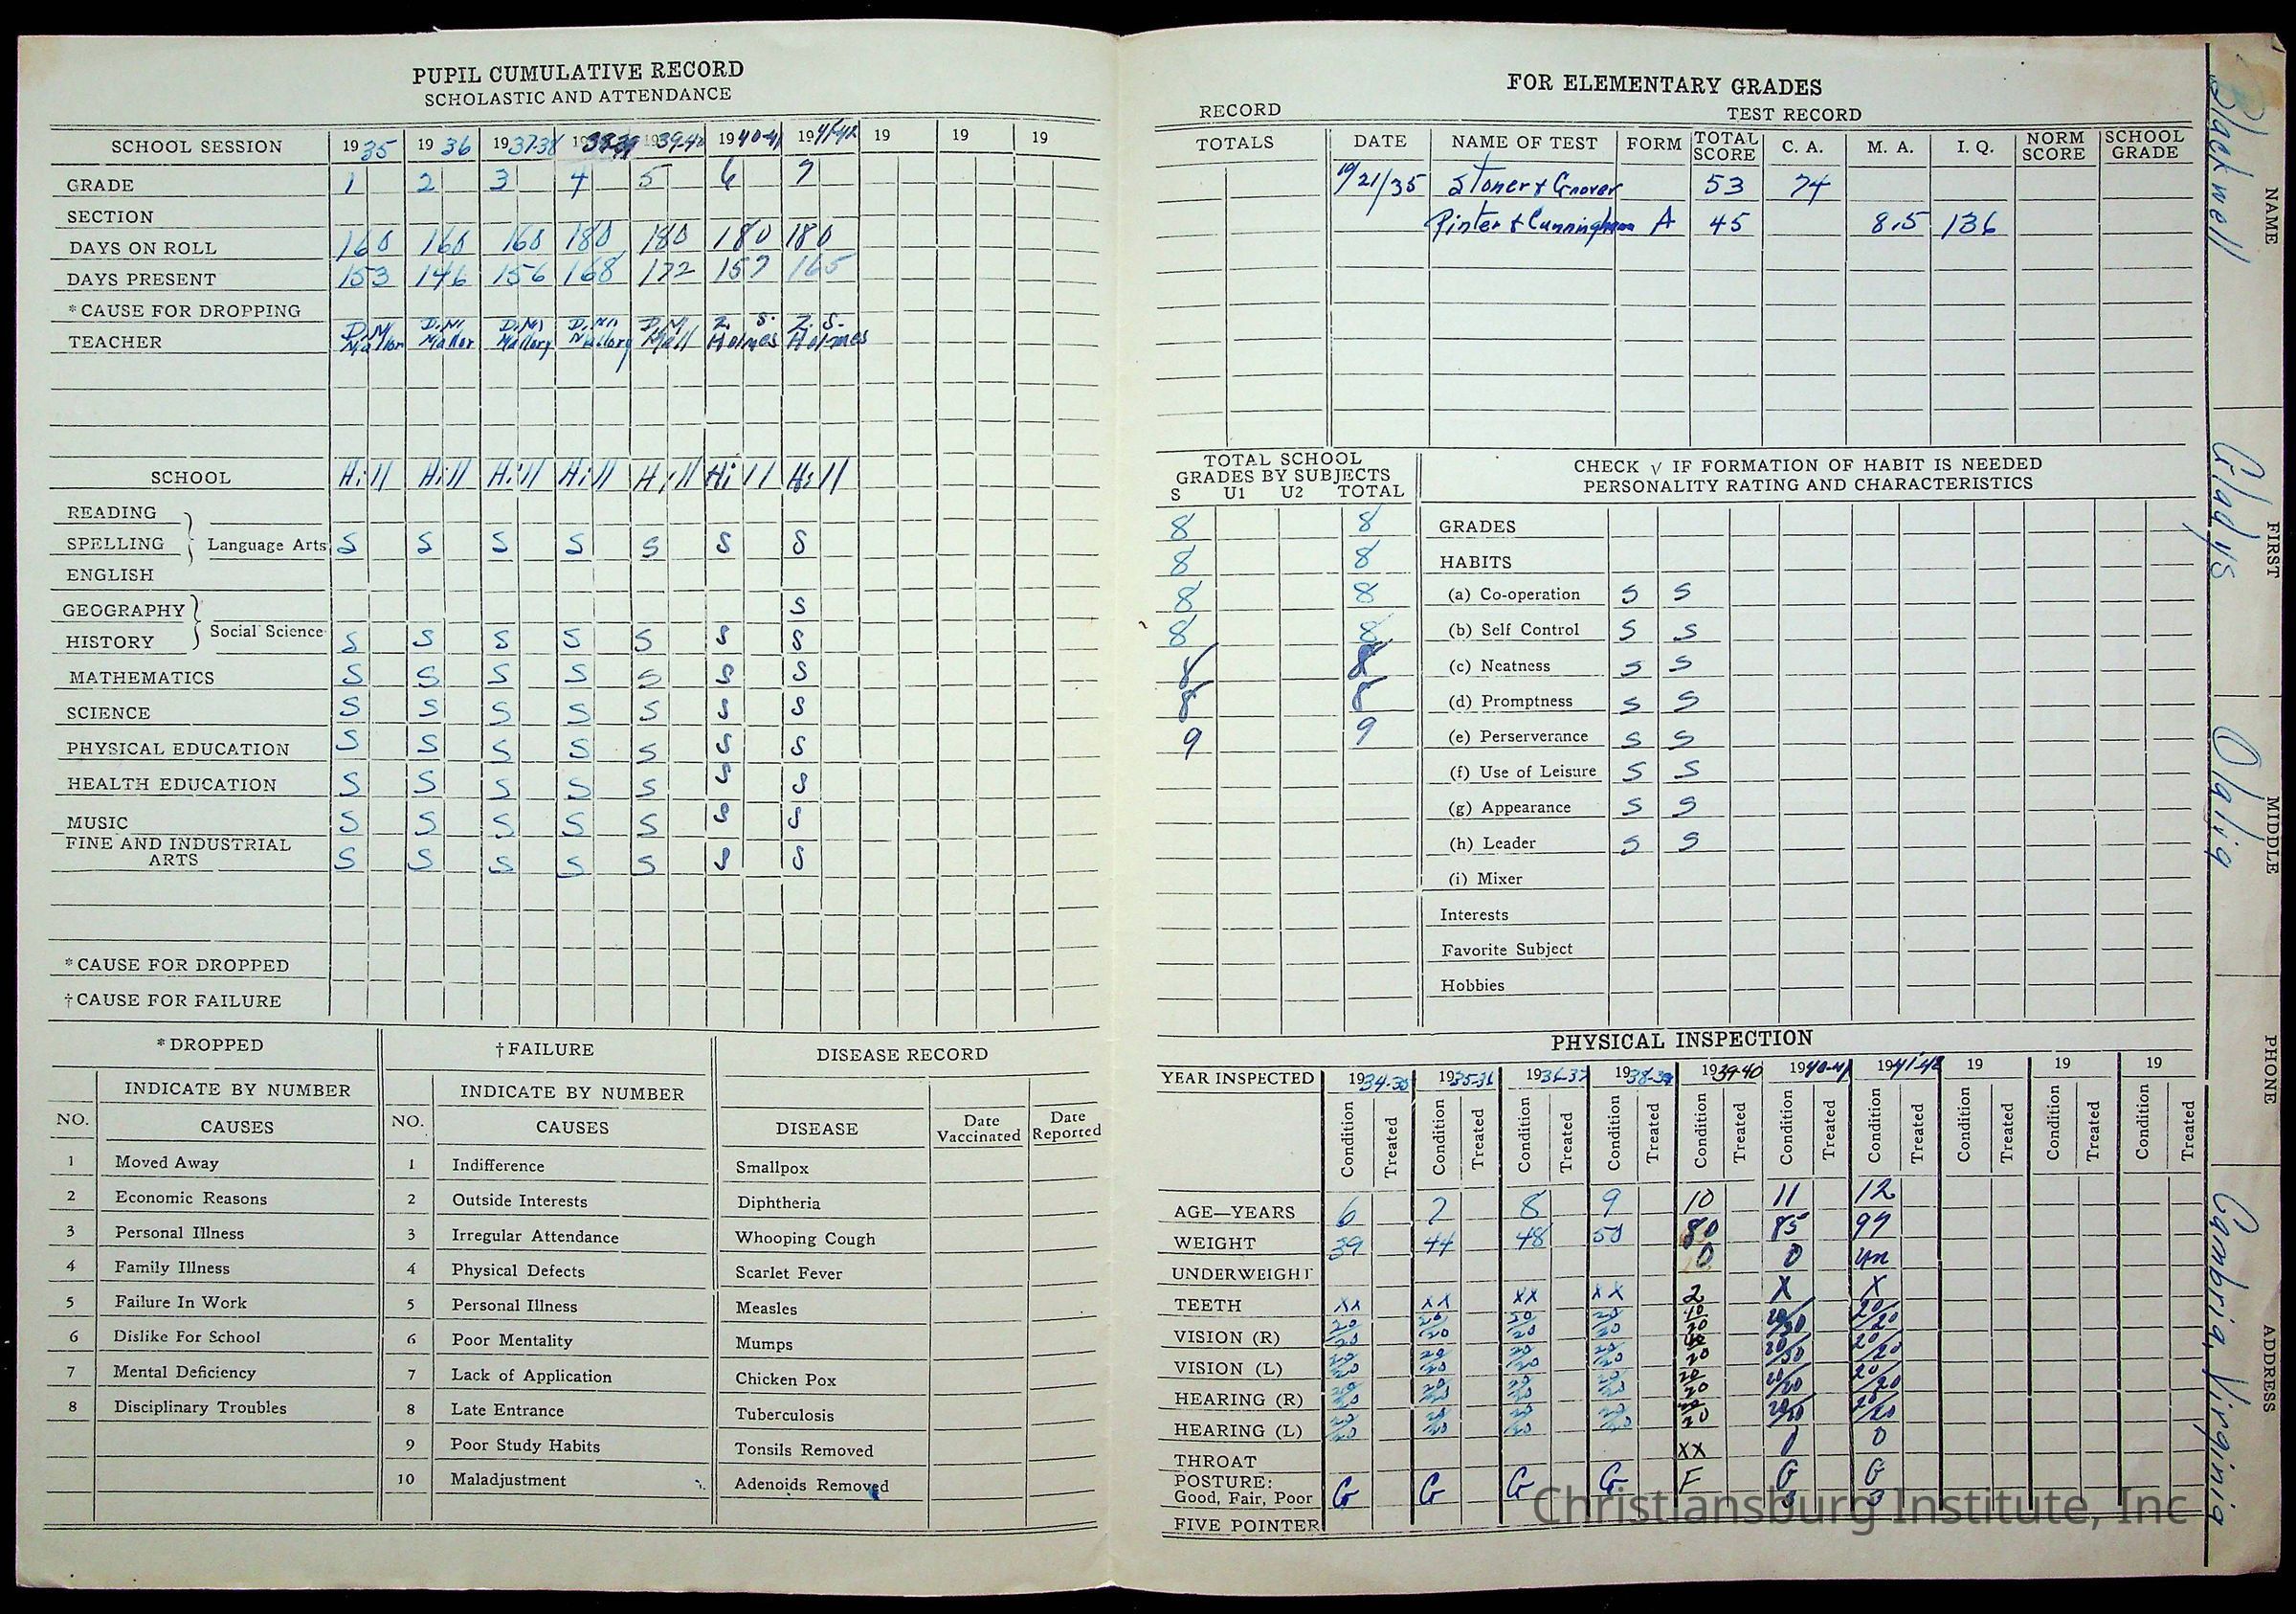 PUPIL CUMULATIVE RECORD
SCHOLASTIC AND ATTENDANCE
SCHOOL SESSION 1935 1936 1937-38 1938-39 1939-40 1940-41 1941-42 19 19 19
GRADE 1 2 3 4 5 6 7
SECTION
DAYS ON ROLL 160 160 160 180 180 180 180
DAYS PRESENT 153 146 156 168 172 157 165
*CAUSE FOR DROPPING
D.M. D.M. D.M. D.M. D.M. Z. S. Z. S.
TEACHER Mallory Mallory Mall Holmes Holmes
SCHOOL Hill Hill Hill Hill Hill Hill Hill
READING
SPELLING Language Arts S S S S S S S
ENGLISH
GEOGRAPHY S
HISTORY Social Science S S S S S S S
MATHEMATICS S S S S S S S
SCIENCE S S S S S S S
PHYSICAL EDUCATION S S S S S S S
HEALTH EDUCATION S S S S S S S
MUSIC S S S S S S S
FINE AND INDUSTRIAL
ARTS S S S S S S S
*CAUSE FOR DROPPED
†CAUSE FOR FAILURE
*DROPPED
INDICATE BY NUMBER
NO. CAUSES
1 Moved Away
2 Economic Reasons
3 Personal Illness
4 Family Illness
5 Failure In Work
6 Dislike For School
7 Mental Deficiency
8 Disciplinary Troubles
†FAILURE
INDICATE BY NUMBER
NO. CAUSES
1 Indifference
2 Outside Interests
3 Irregular Attendance
4 Physical Defects
5 Personal Illness
6 Poor Mentality
7 Lack of Application
8 Late Entrance
9 Poor Study Habits
10 Maladjustment
DISEASE RECORD
DISEASE Date Vaccinated Date Reported
Smallpox
Diphtheria
Whooping Cough
Scarlet Fever
Measles
Mumps
Chicken Pox
Tuberculosis
Tonsils Removed
Adenoids Removed
FOR ELEMENTARY GRADES
RECORD TEST RECORD
TOTALS DATE NAME OF TEST FORM TOTAL SCORE C. A. M. A. I. Q. NORM SCORE SCHOOL GRADE
10/21/35 Stoner & Groover 53 74
Pinter & Cunningham A 45 8.5 136
TOTAL SCHOOL
GRADES BY SUBJECTS
S U1 U2 TOTAL
8 8
8 8
8 8
8 8
8 8
8 8
9 9
CHECK √ IF FORMATION OF HABIT IS NEEDED
PERSONALITY RATING AND CHARACTERISTICS
GRADES
HABITS
(a) Co-operation S S
(b) Self Control S S
(c) Neatness S S
(d) Promptness S S
(e) Perserverance S S
(f) Use of Leisure S S
(g) Appearance S S
(h) Leader S S
(i) Mixer
Interests
Favorite Subject
Hobbies
PHYSICAL INSPECTION
YEAR INSPECTED 1934-35 1935-36 1936-37 1938-39 1939-40 1940-41 1941-42 19 19 19
Condition Treated Condition Treated Condition Treated Condition Treated Condition Treated Condition Treated Condition Treated Condition Treated Condition Treated Condition Treated
AGE—YEARS 6 7 8 9 10 11 12
WEIGHT 39 44 48 80 85 99
UNDERWEIGHT 0 0 un
TEETH xx xx xx xx 2 X X
VISION (R) 20/20
VISION (L) 20/20
HEARING (R) 20/20
HEARING (L) 20/20
THROAT xx 0 0
POSTURE:
Good, Fair, Poor G G G G F G G
FIVE POINTER 3 3
NAME FIRST MIDDLE PHONE ADDRESS
Blackwell Gladys Olavia Cambria, Virginia
Christiansburg Institute, Inc